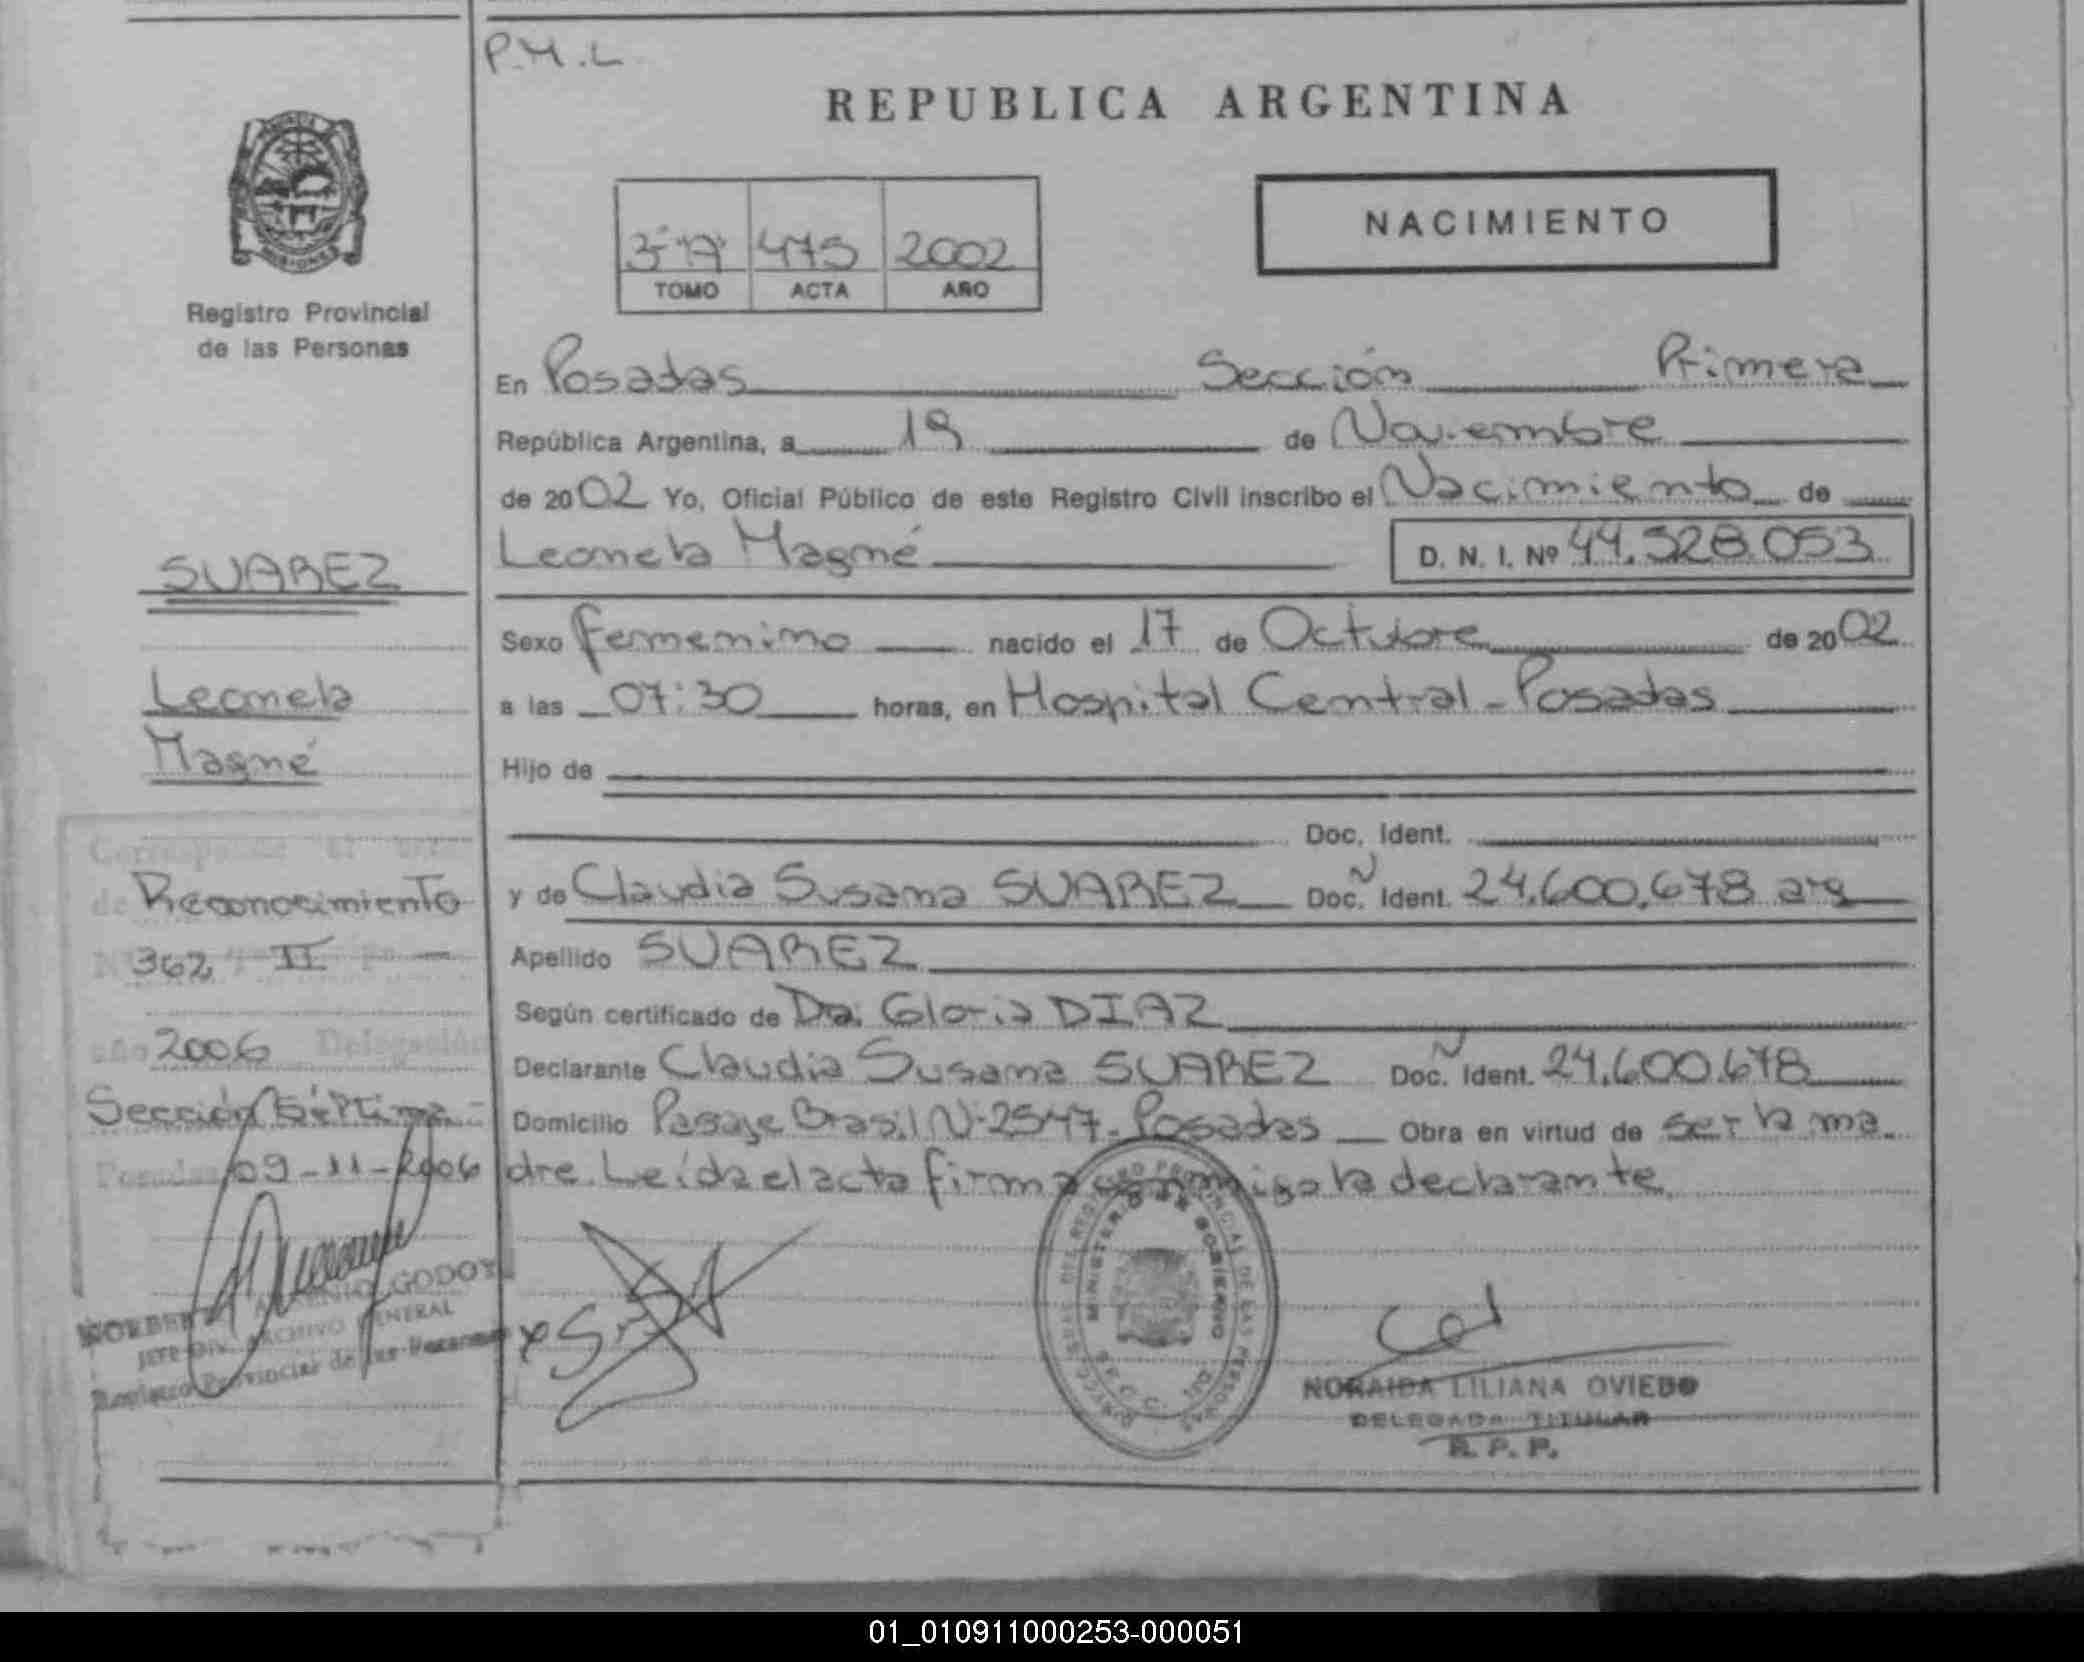 P.M.L
REPUBLICA ARGENTINA
NACIMIENTO
3º "A" 475 2002
TOMO ACTA AÑO
Registro Provincial
de las Personas
En Posadas Sección Primera
República Argentina, a 19 de Noviembre
de 2002 Yo, Oficial Público de este Registro Civil inscribo el Nacimiento de
Leonela Magné D. N. I. Nº 44.528.053
SUAREZ
Leonela
Magné
Sexo femenino nacido el 17 de Octubre de 2002
a las 07:30 horas, en Hospital Central - Posadas
Hijo de
Doc. Ident.
y de Claudia Susana SUAREZ Doc. Ident. 24.600.678 arg
Apellido SUAREZ
Según certificado de Dra. Gloria DIAZ
Declarante Claudia Susana SUAREZ Doc. Ident. 24.600.678
Domicilio Pasaje Brasil Nº 2547 - Posadas Obra en virtud de ser la ma
dre. Leída el acta firma conmigo la declarante
Corresponde al
de Reconocimiento
Nº 362 Tº II Fº —
año 2006 Delegación
Sección Séptima
Posadas 09-11-2006
GODOY
JEFE DIV. ARCHIVO GENERAL
Registro Provincial de las Personas
MINISTERIO DE GOBIERNO
NORAIDA LILIANA OVIEDO
DELEGADA TITULAR
R. P. P.
01_010911000253-000051